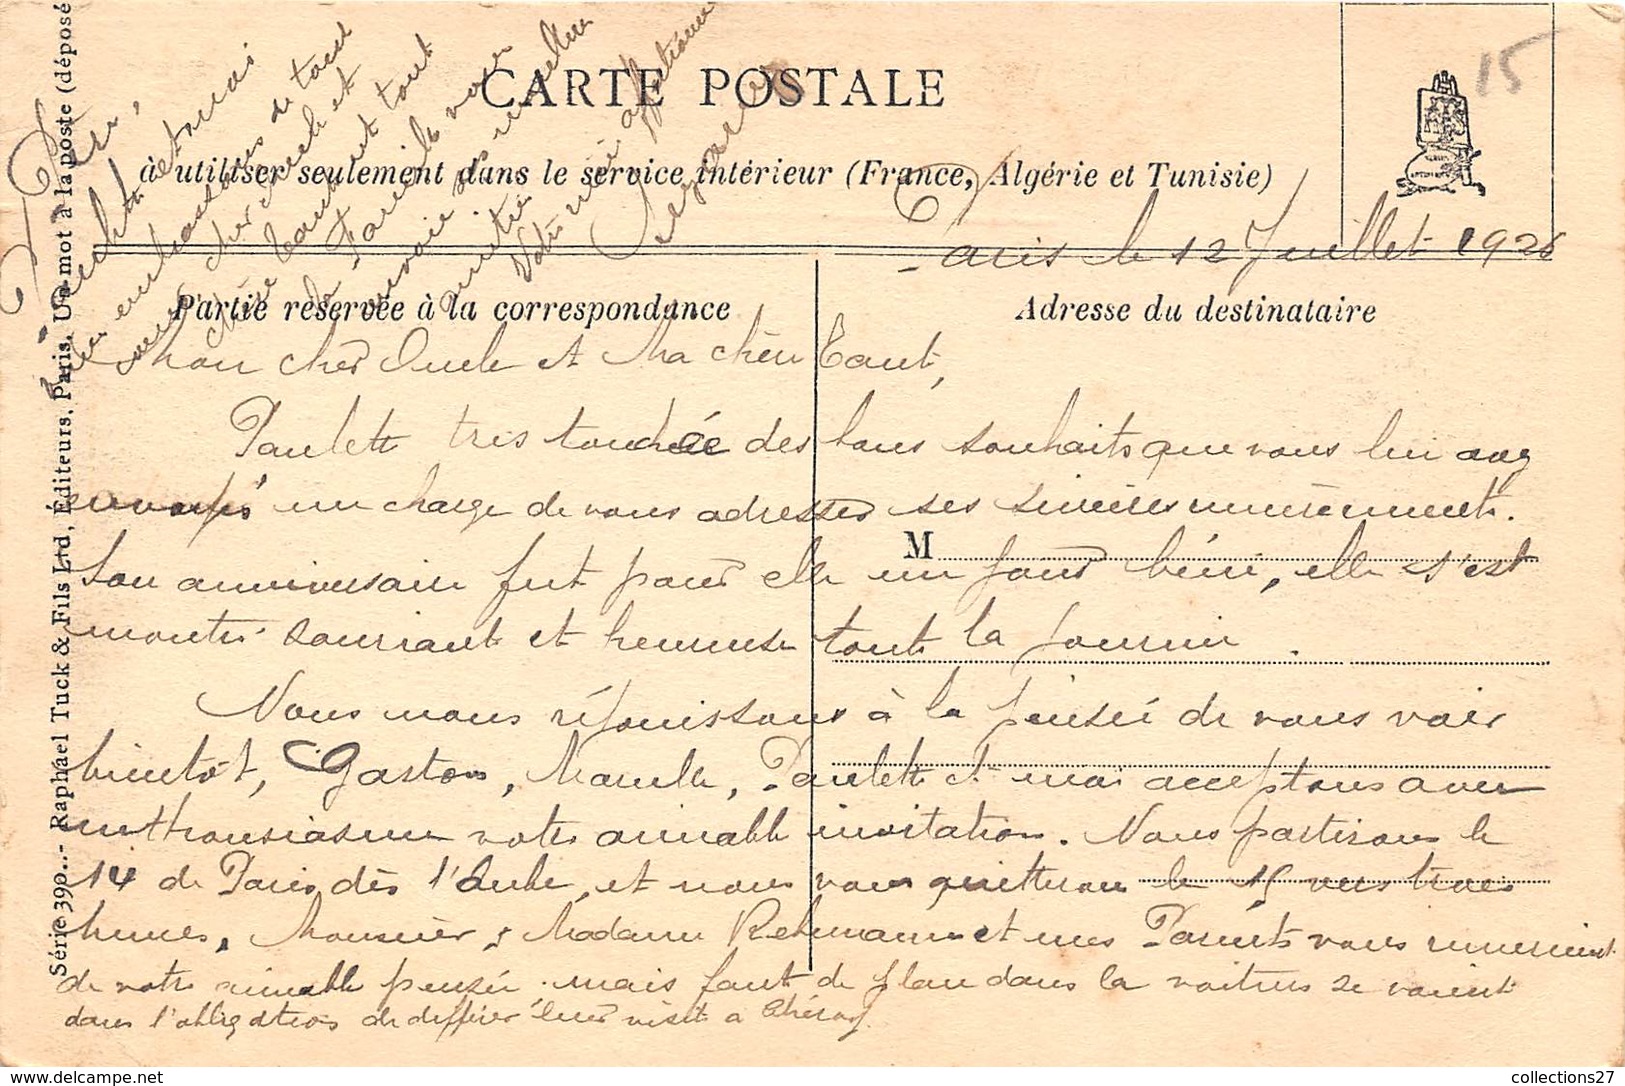 15
CARTE POSTALE
à utiliser seulement dans le service intérieur (France, Algérie et Tunisie)
Paris le 12 Juillet 1926
Partie réservée à la correspondance
Adresse du destinataire
Mon cher Oncle et Ma chère Tante,
Paulette très touchée des bons souhaits que vous lui avez
envoyés me charge de vous adresser ses sincères remerciements.
M
Son anniversaire fut pour elle un jour béni, elle s'est
montrée souriante et heureuse toute la journée.
Nous nous réjouissons à la pensée de vous voir
bientôt, Gaston, Marcelle, Paulette et moi acceptons avec
enthousiasme votre aimable invitation. Nous partirons le
14 de Paris, dès l'Aube, et nous vous quitterons le 15 vers trois
heures, Monsieur, Madame et mes Parents vous remercient
de votre aimable pensée mais faute de place dans la voiture se voient
dans l'obligation de différer leur visite à
Paulette et moi
embrassons de tout
cher Oncle et
chère Tante et toute
la Famille vous
envoie ses meilleures
amitiés
Votre affectionné
Série 390.- Raphael Tuck & Fils Ltd, Éditeurs, Paris. Un mot à la poste (déposé
collections27